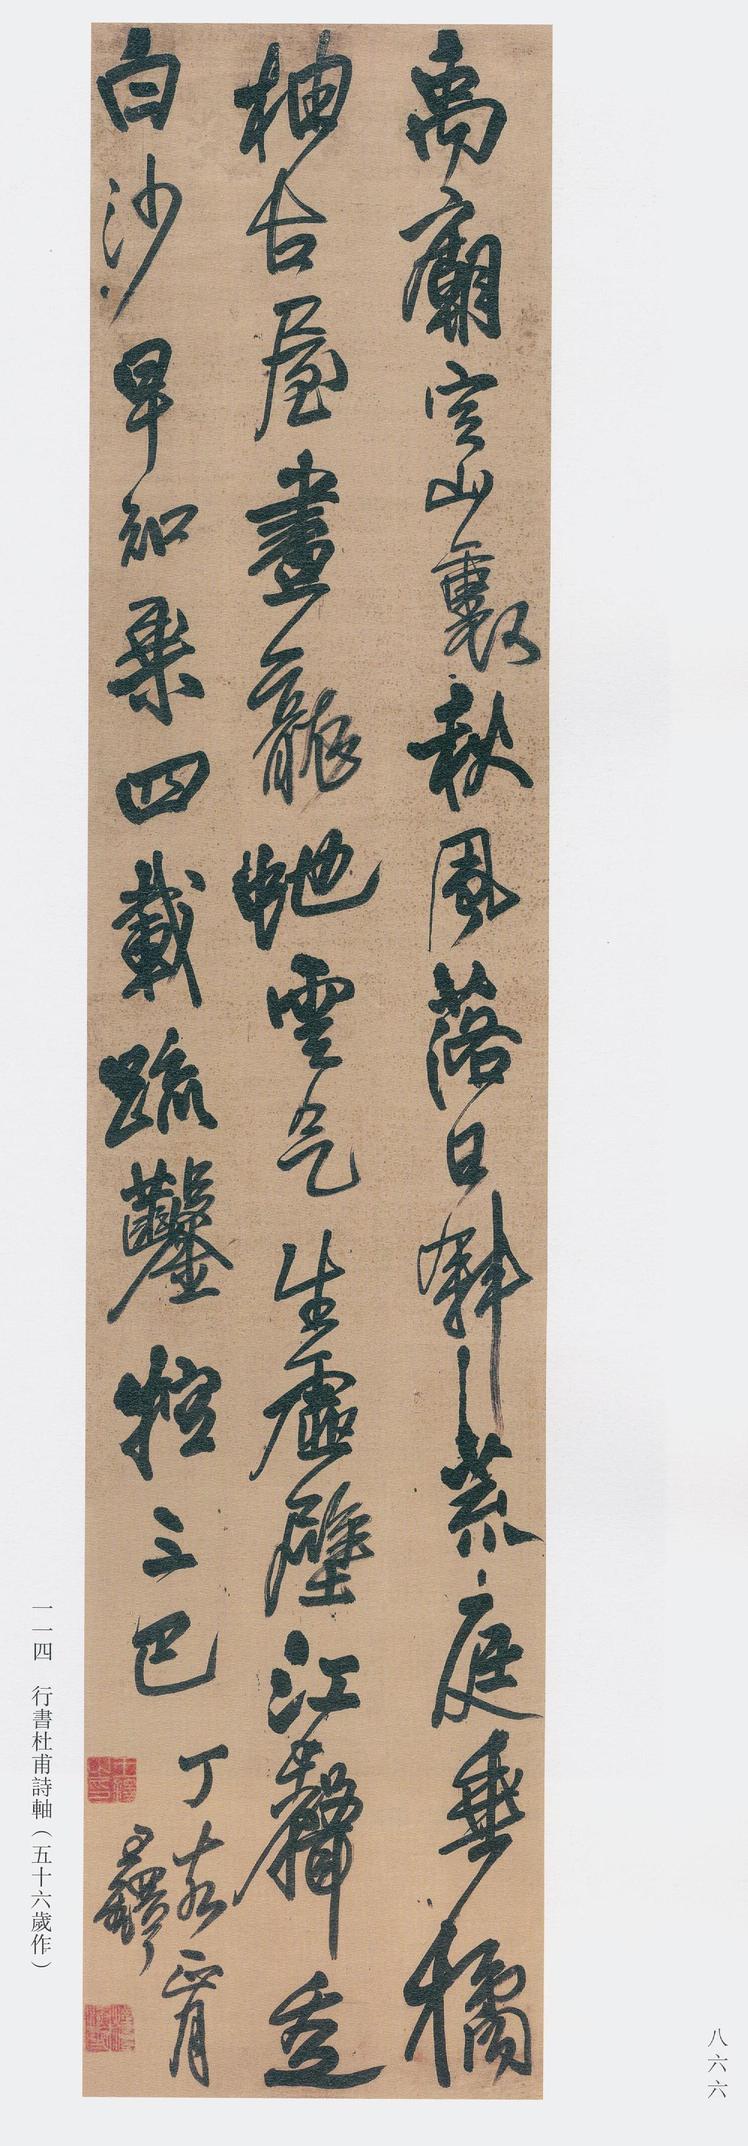 禹廟空山裏秋風落日斜荒庭垂橘
柚古屋畫龍虵雲气生虛壁江聲走
白沙早知乘四載疏鑿控三巴
丁亥正月
王鐸
一一四　行書杜甫詩軸（五十六歲作）
八六六